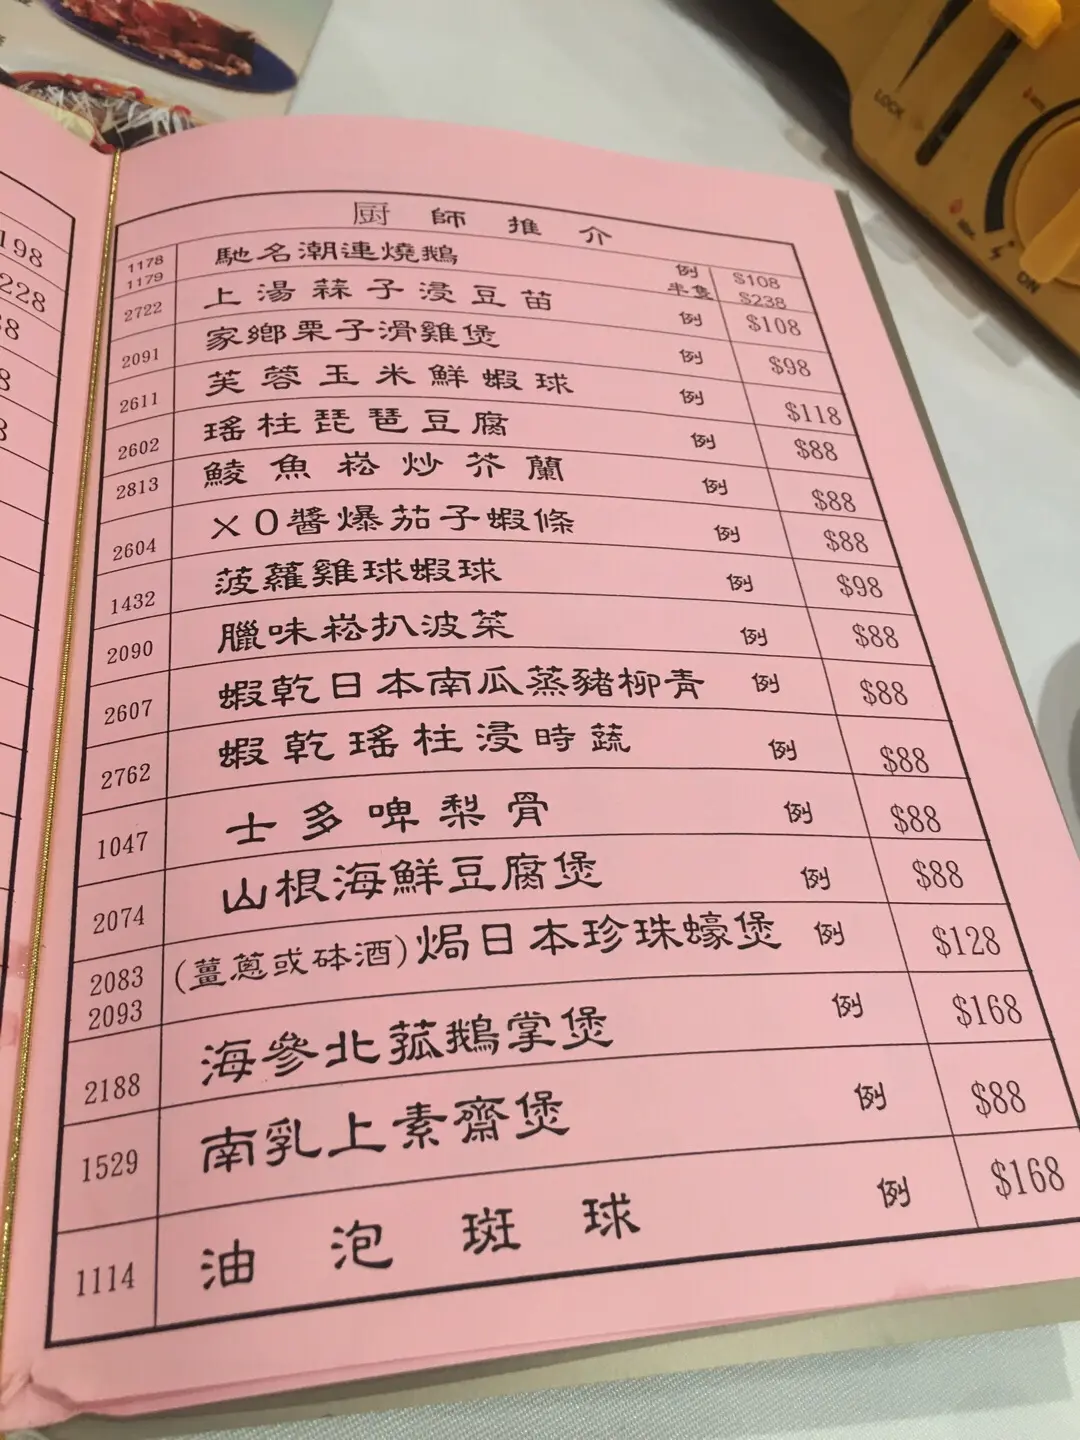 198
228
8
8
8
厨師推介
1178 馳名潮連燒鵝 例 $108
1179 半隻 $238
2722 上湯蒜子浸豆苗 例 $108
2091 家鄉栗子滑雞煲 例 $98
2611 芙蓉玉米鮮蝦球 例 $118
2602 瑤柱琵琶豆腐 例 $88
2813 鯪魚崧炒芥蘭 例 $88
2604 XO醬爆茄子蝦條 例 $88
1432 菠蘿雞球蝦球 例 $98
2090 臘味崧扒波菜 例 $88
2607 蝦乾日本南瓜蒸豬柳青 例 $88
2762 蝦乾瑤柱浸時蔬 例 $88
1047 士多啤梨骨 例 $88
2074 山根海鮮豆腐煲 例 $88
2083 (薑蔥或砵酒)焗日本珍珠蠔煲 例 $128
2093
2188 海參北菰鵝掌煲 例 $168
1529 南乳上素齋煲 例 $88
1114 油泡斑球 例 $168
LOCK
ON